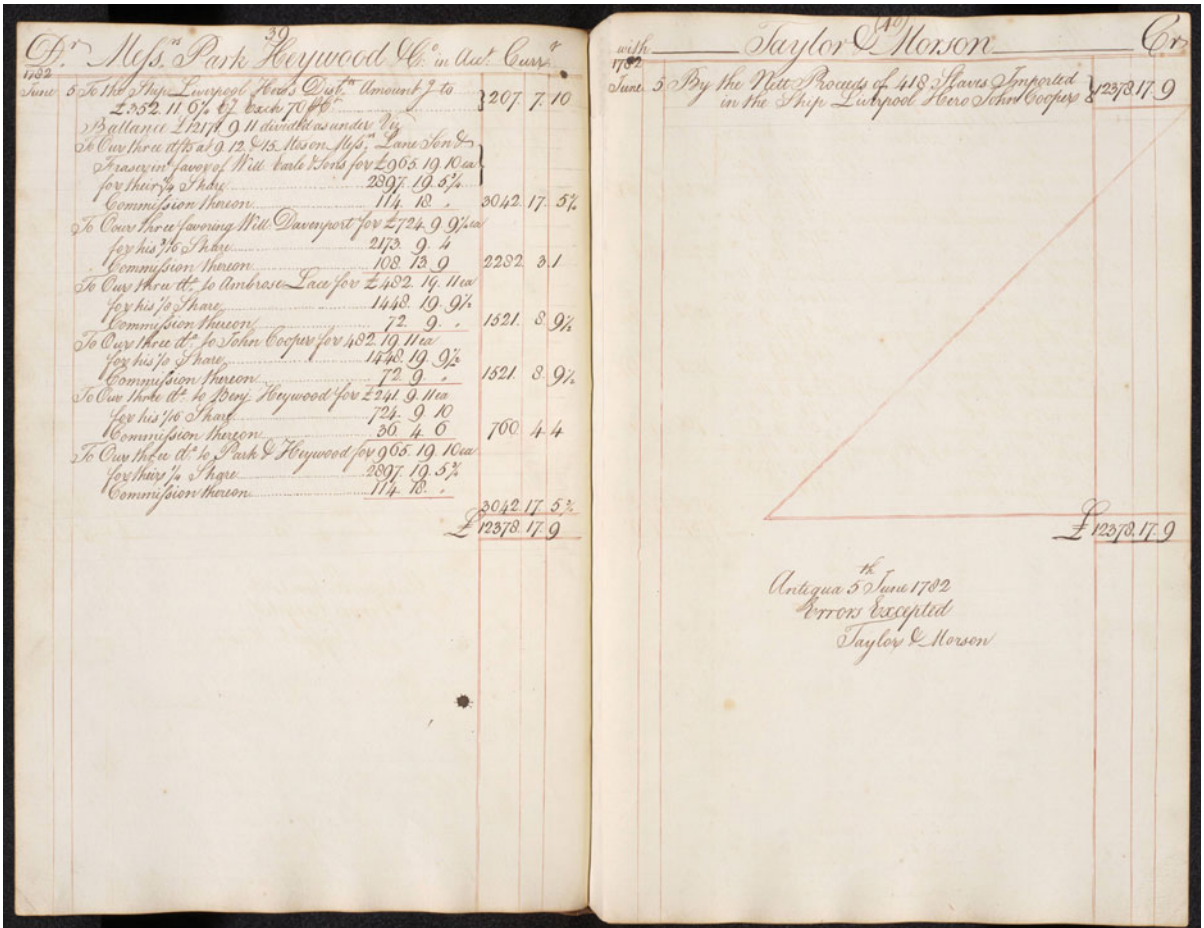 39
Dr. Messrs. Park Heywood & Co. in Acct. Currt.
1782
June 5 To the Ship Liverpool Hero's Disbts. Amountg to
£352. 11. 6¾ Exch 70 207. 7. 10
Ballance £12171. 9. 11 divided as under Viz
To Our three dfts at 9. 12. & 15. Mos on Messrs. Lane Son &
Fraser in favor of Will. Earle & Sons for £965. 19. 10 ea
for their ¼ Share 2897. 19. 5¾
Commission thereon 114. 18. " 3042. 17. 5¾
To Our three favoring Will. Davenport for £724. 9. 9¼ ea
for his 3/16 Share 2173. 9. 4
Commission thereon 108. 13. 9 2282. 3. 1
To Our three do. to Ambrose Lace for £482. 19. 11 ea
for his ⅛ Share 1448. 19. 9½
Commission thereon 72. 9. " 1521. 8. 9½
To Our three do. to John Cooper for 482. 19. 11 ea
for his ⅛ Share 1448. 19. 9½
Commission thereon 72. 9. " 1521. 8. 9½
To Our three do. to Benj. Heywood for £241. 9. 11 ea
for his 1/16 Share 724. 9. 10
Commission thereon 36. 4. 6 760. 4. 4
To Our three do. to Park & Heywood for 965. 19. 10 ea
for theirs ¼ Share 2897. 19. 5¾
Commission thereon 114. 18. "
3042. 17. 5¾
£ 12378. 17. 9
(40)
with Taylor & Morson Cr
1782
June 5 By the Nett Proceeds of 418 Slaves Imported
in the Ship Liverpool Hero John Cooper 12378. 17. 9
£ 12378. 17. 9
Antigua 5th June 1782
Errors Excepted
Taylor & Morson